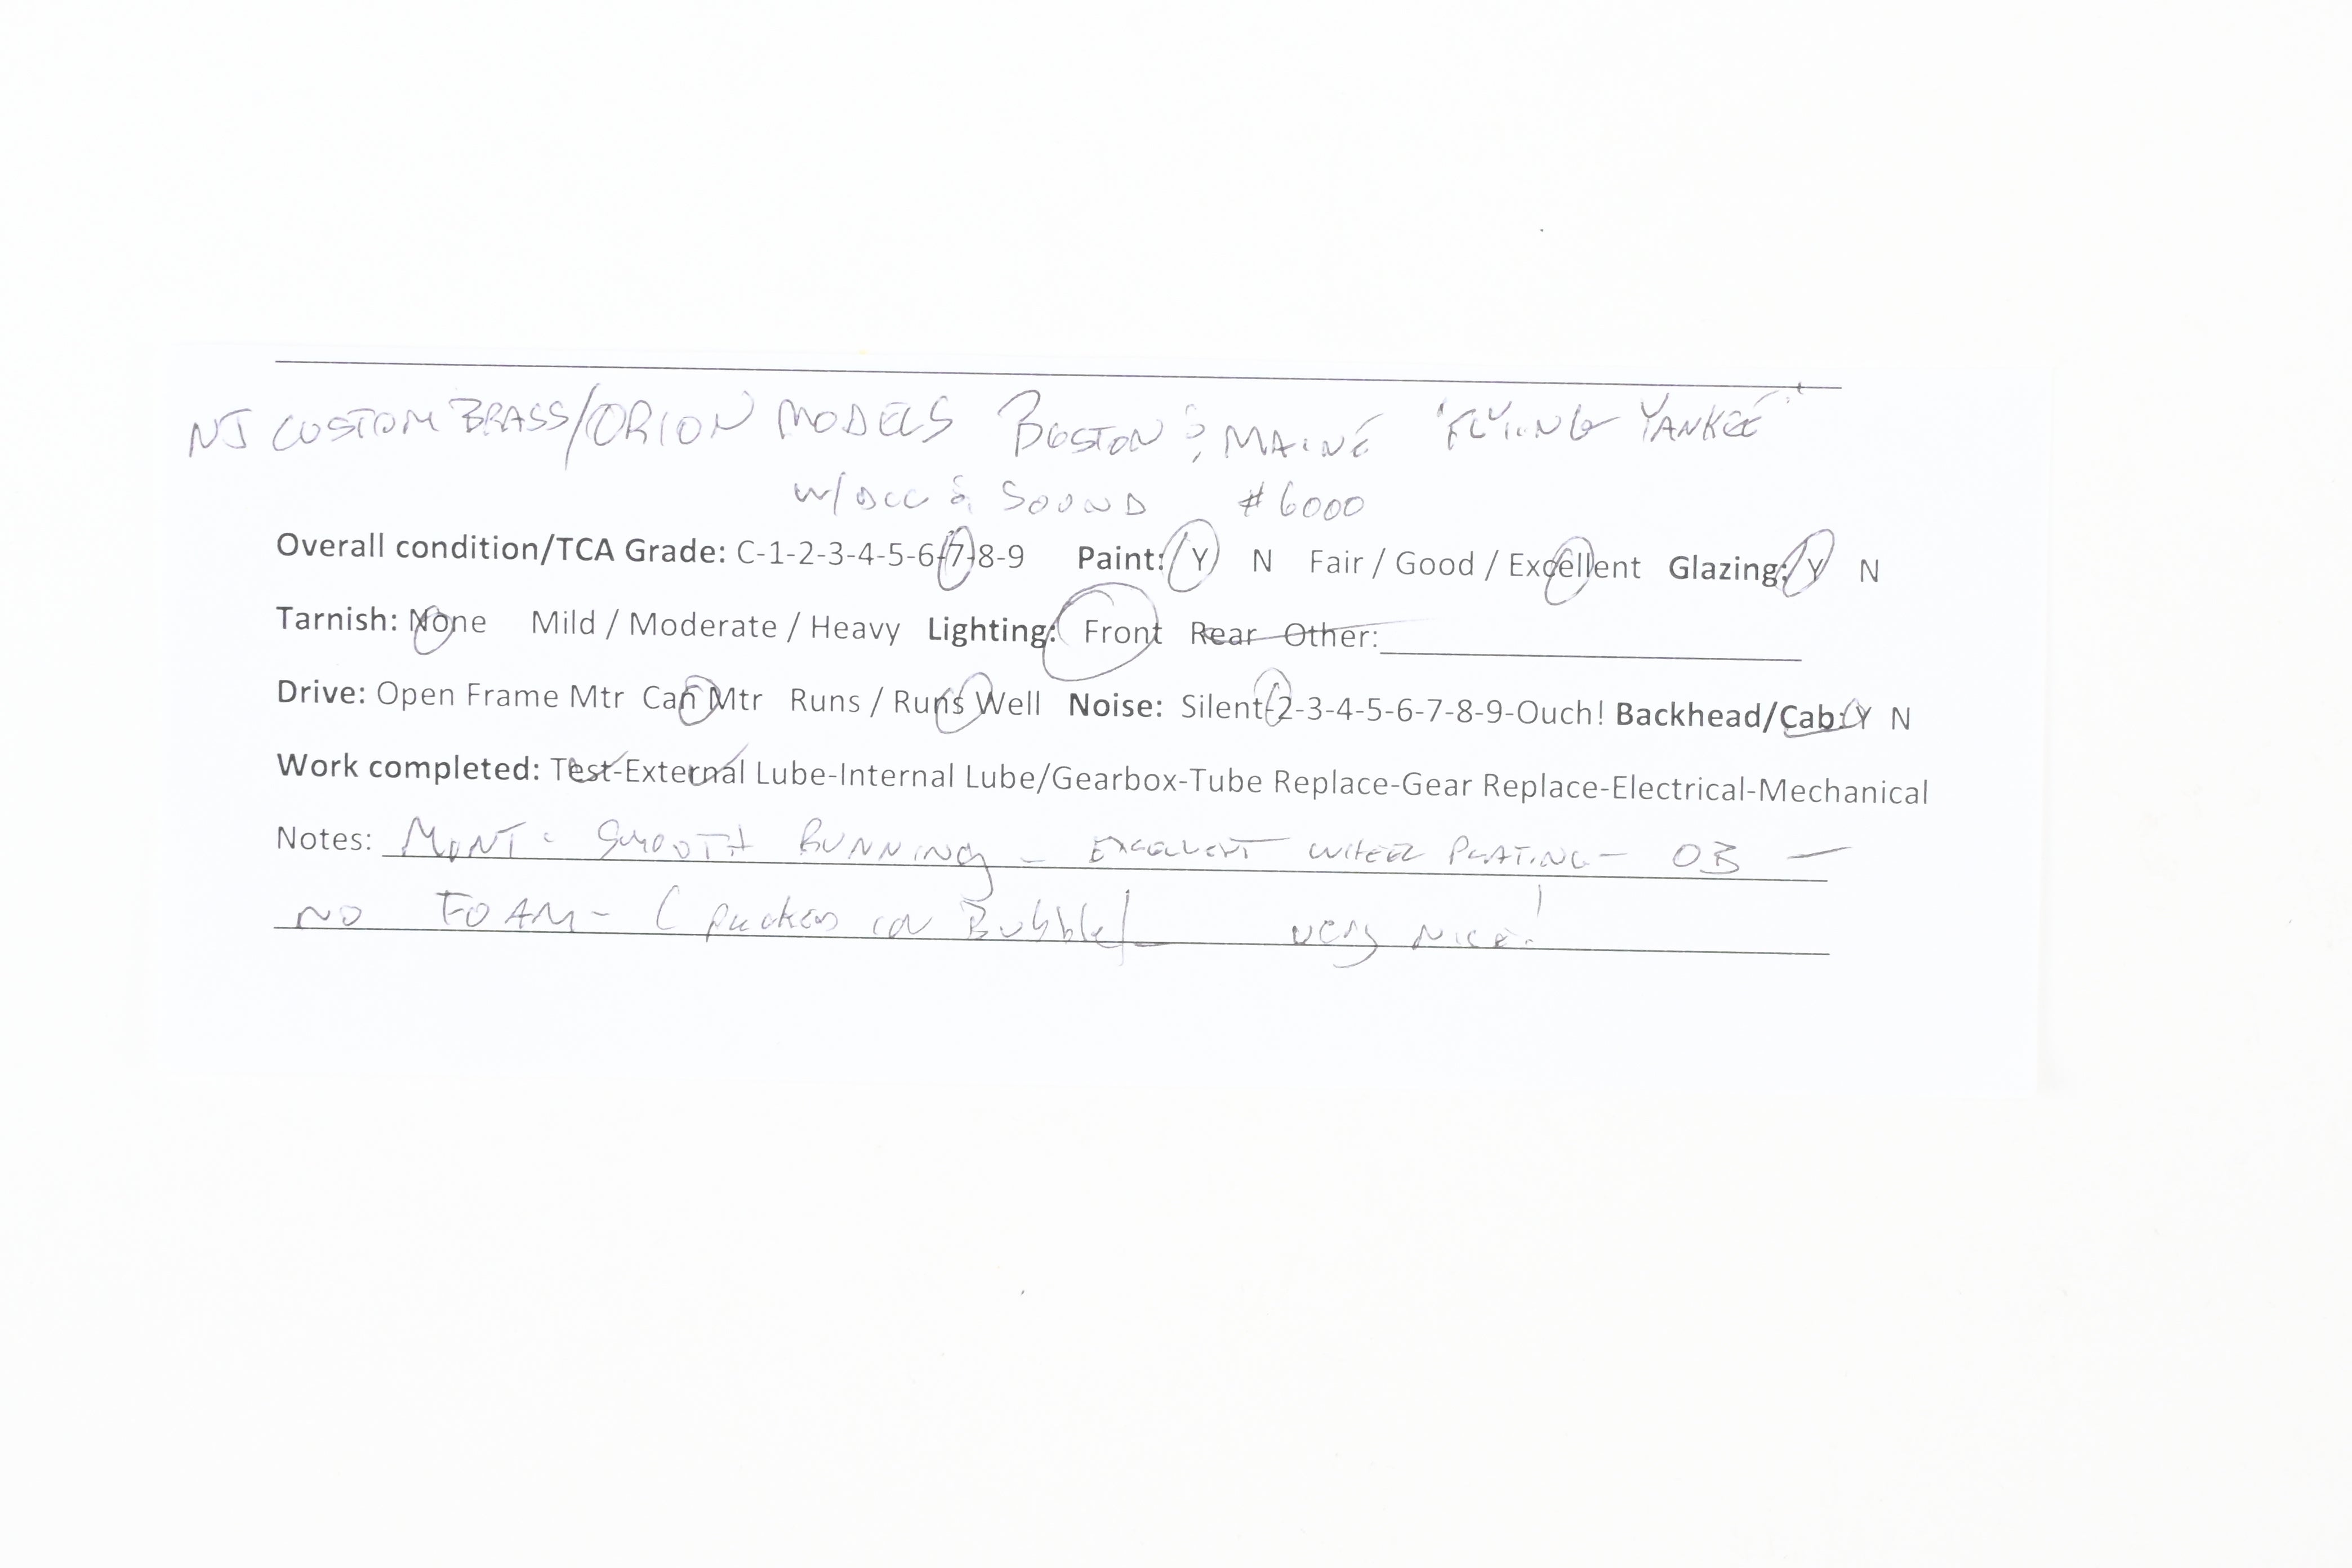 NJ CUSTOM BRASS/ORION MODELS BOSTON & MAINE "FLYING YANKEE"
W/DCC & SOUND #6000
Overall condition/TCA Grade: C-1-2-3-4-5-6-7-8-9 Paint: Y N Fair / Good / Excellent Glazing: Y N
Tarnish: None Mild / Moderate / Heavy Lighting: Front Rear Other:
Drive: Open Frame Mtr Can Mtr Runs / Runs Well Noise: Silent-2-3-4-5-6-7-8-9-Ouch! Backhead/Cab: Y N
Work completed: Test-External Lube-Internal Lube/Gearbox-Tube Replace-Gear Replace-Electrical-Mechanical
Notes: MINT - SMOOTH RUNNING - EXCELLENT WHEEL PLATING - OB -
NO FOAM - (packed in Bubble) very nice!